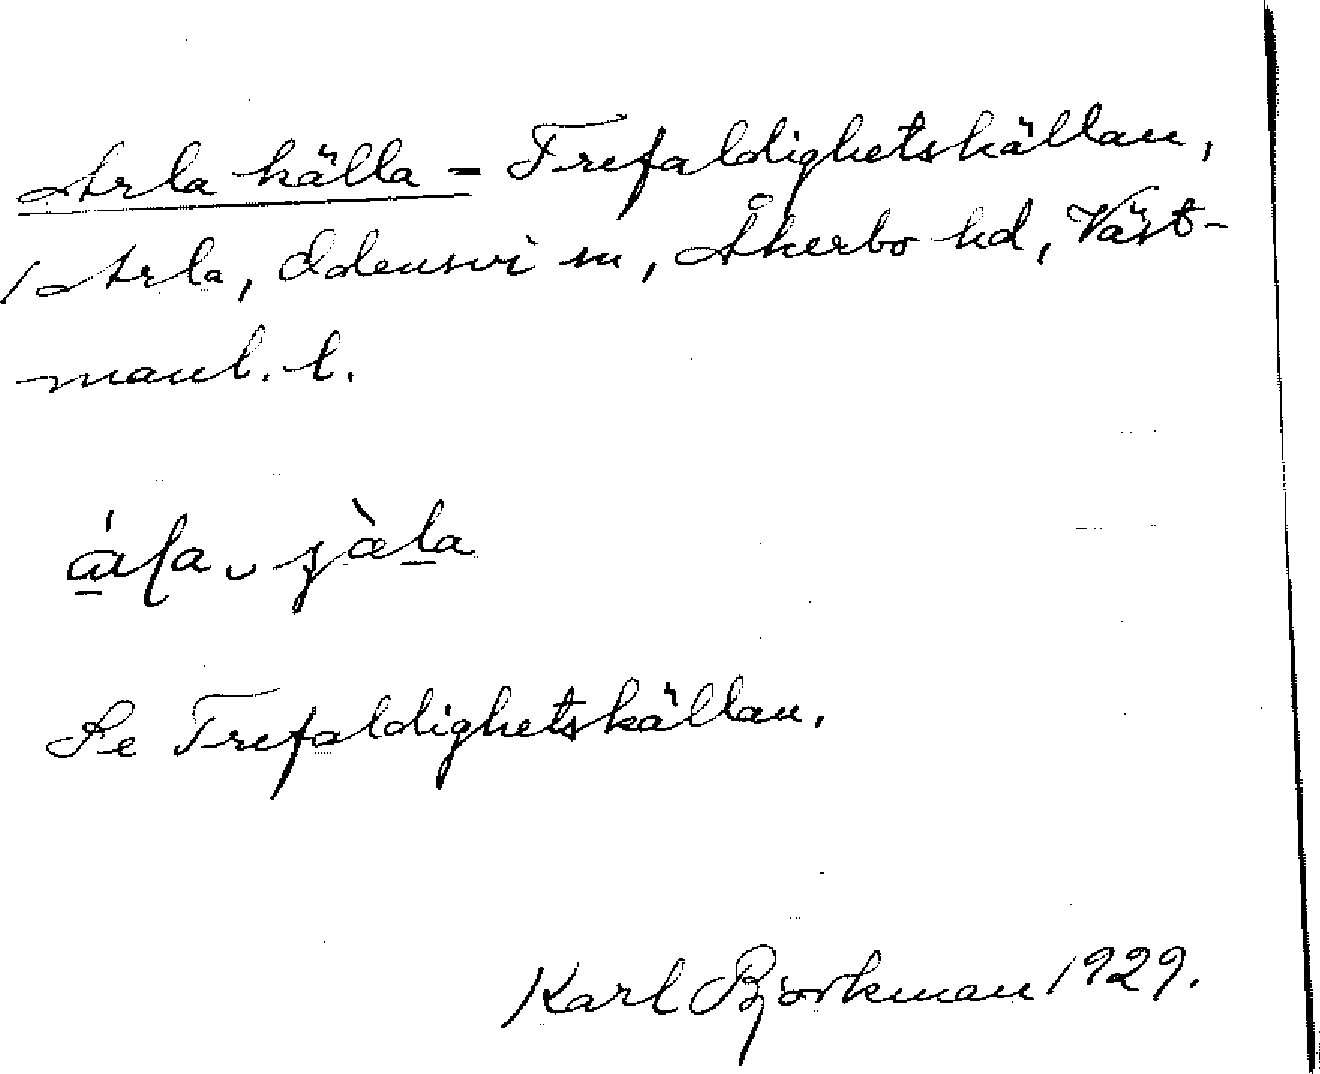 Arla källa = Trefaldighetskällan,
/ Arla, Odensvi sn, Åkerbo hd, Väst-
manl. l.
Se Trefaldighetskällan.
Karl Björkman 1929.